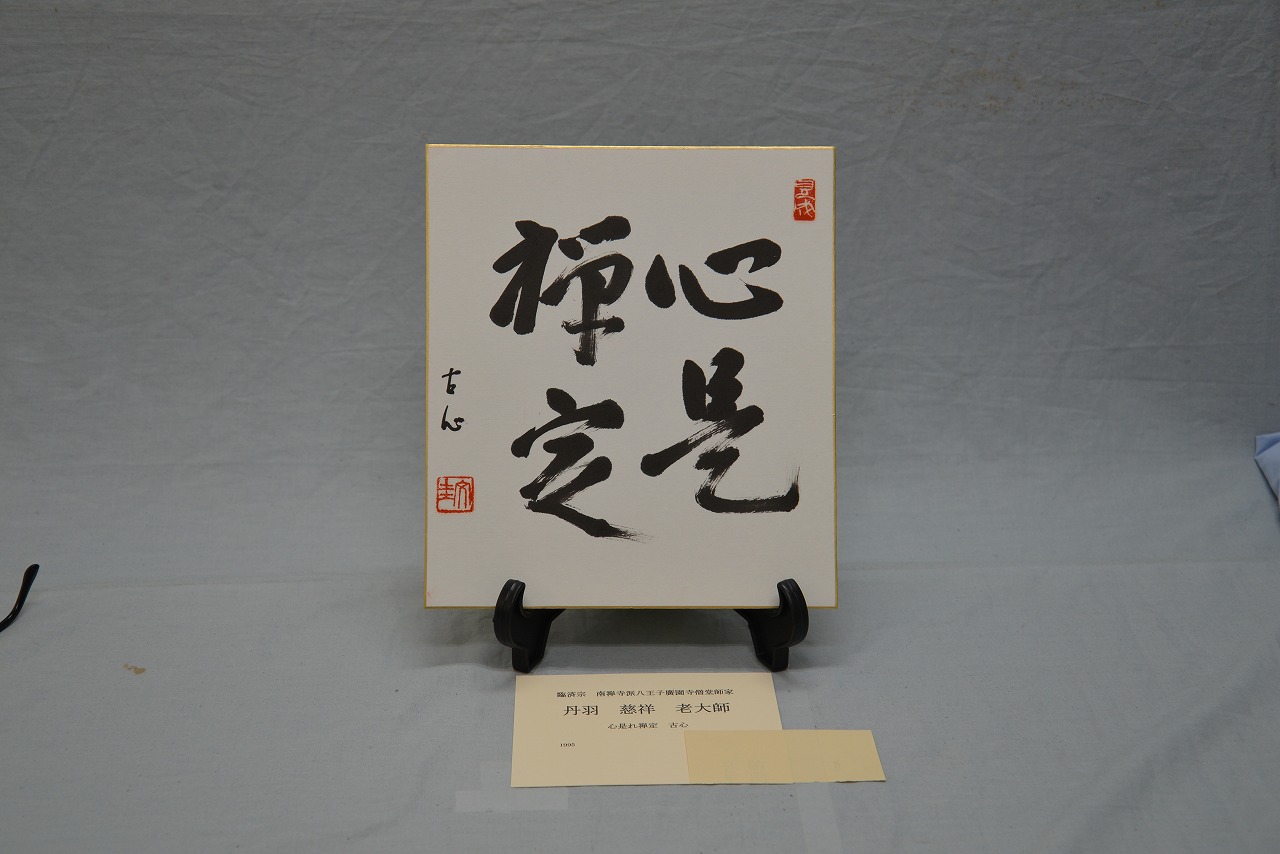 心是
禅定
古心
臨済宗　南禅寺派八王子廣園寺僧堂師家
丹羽　慈祥　老大師
心是れ禅定　古心
1995